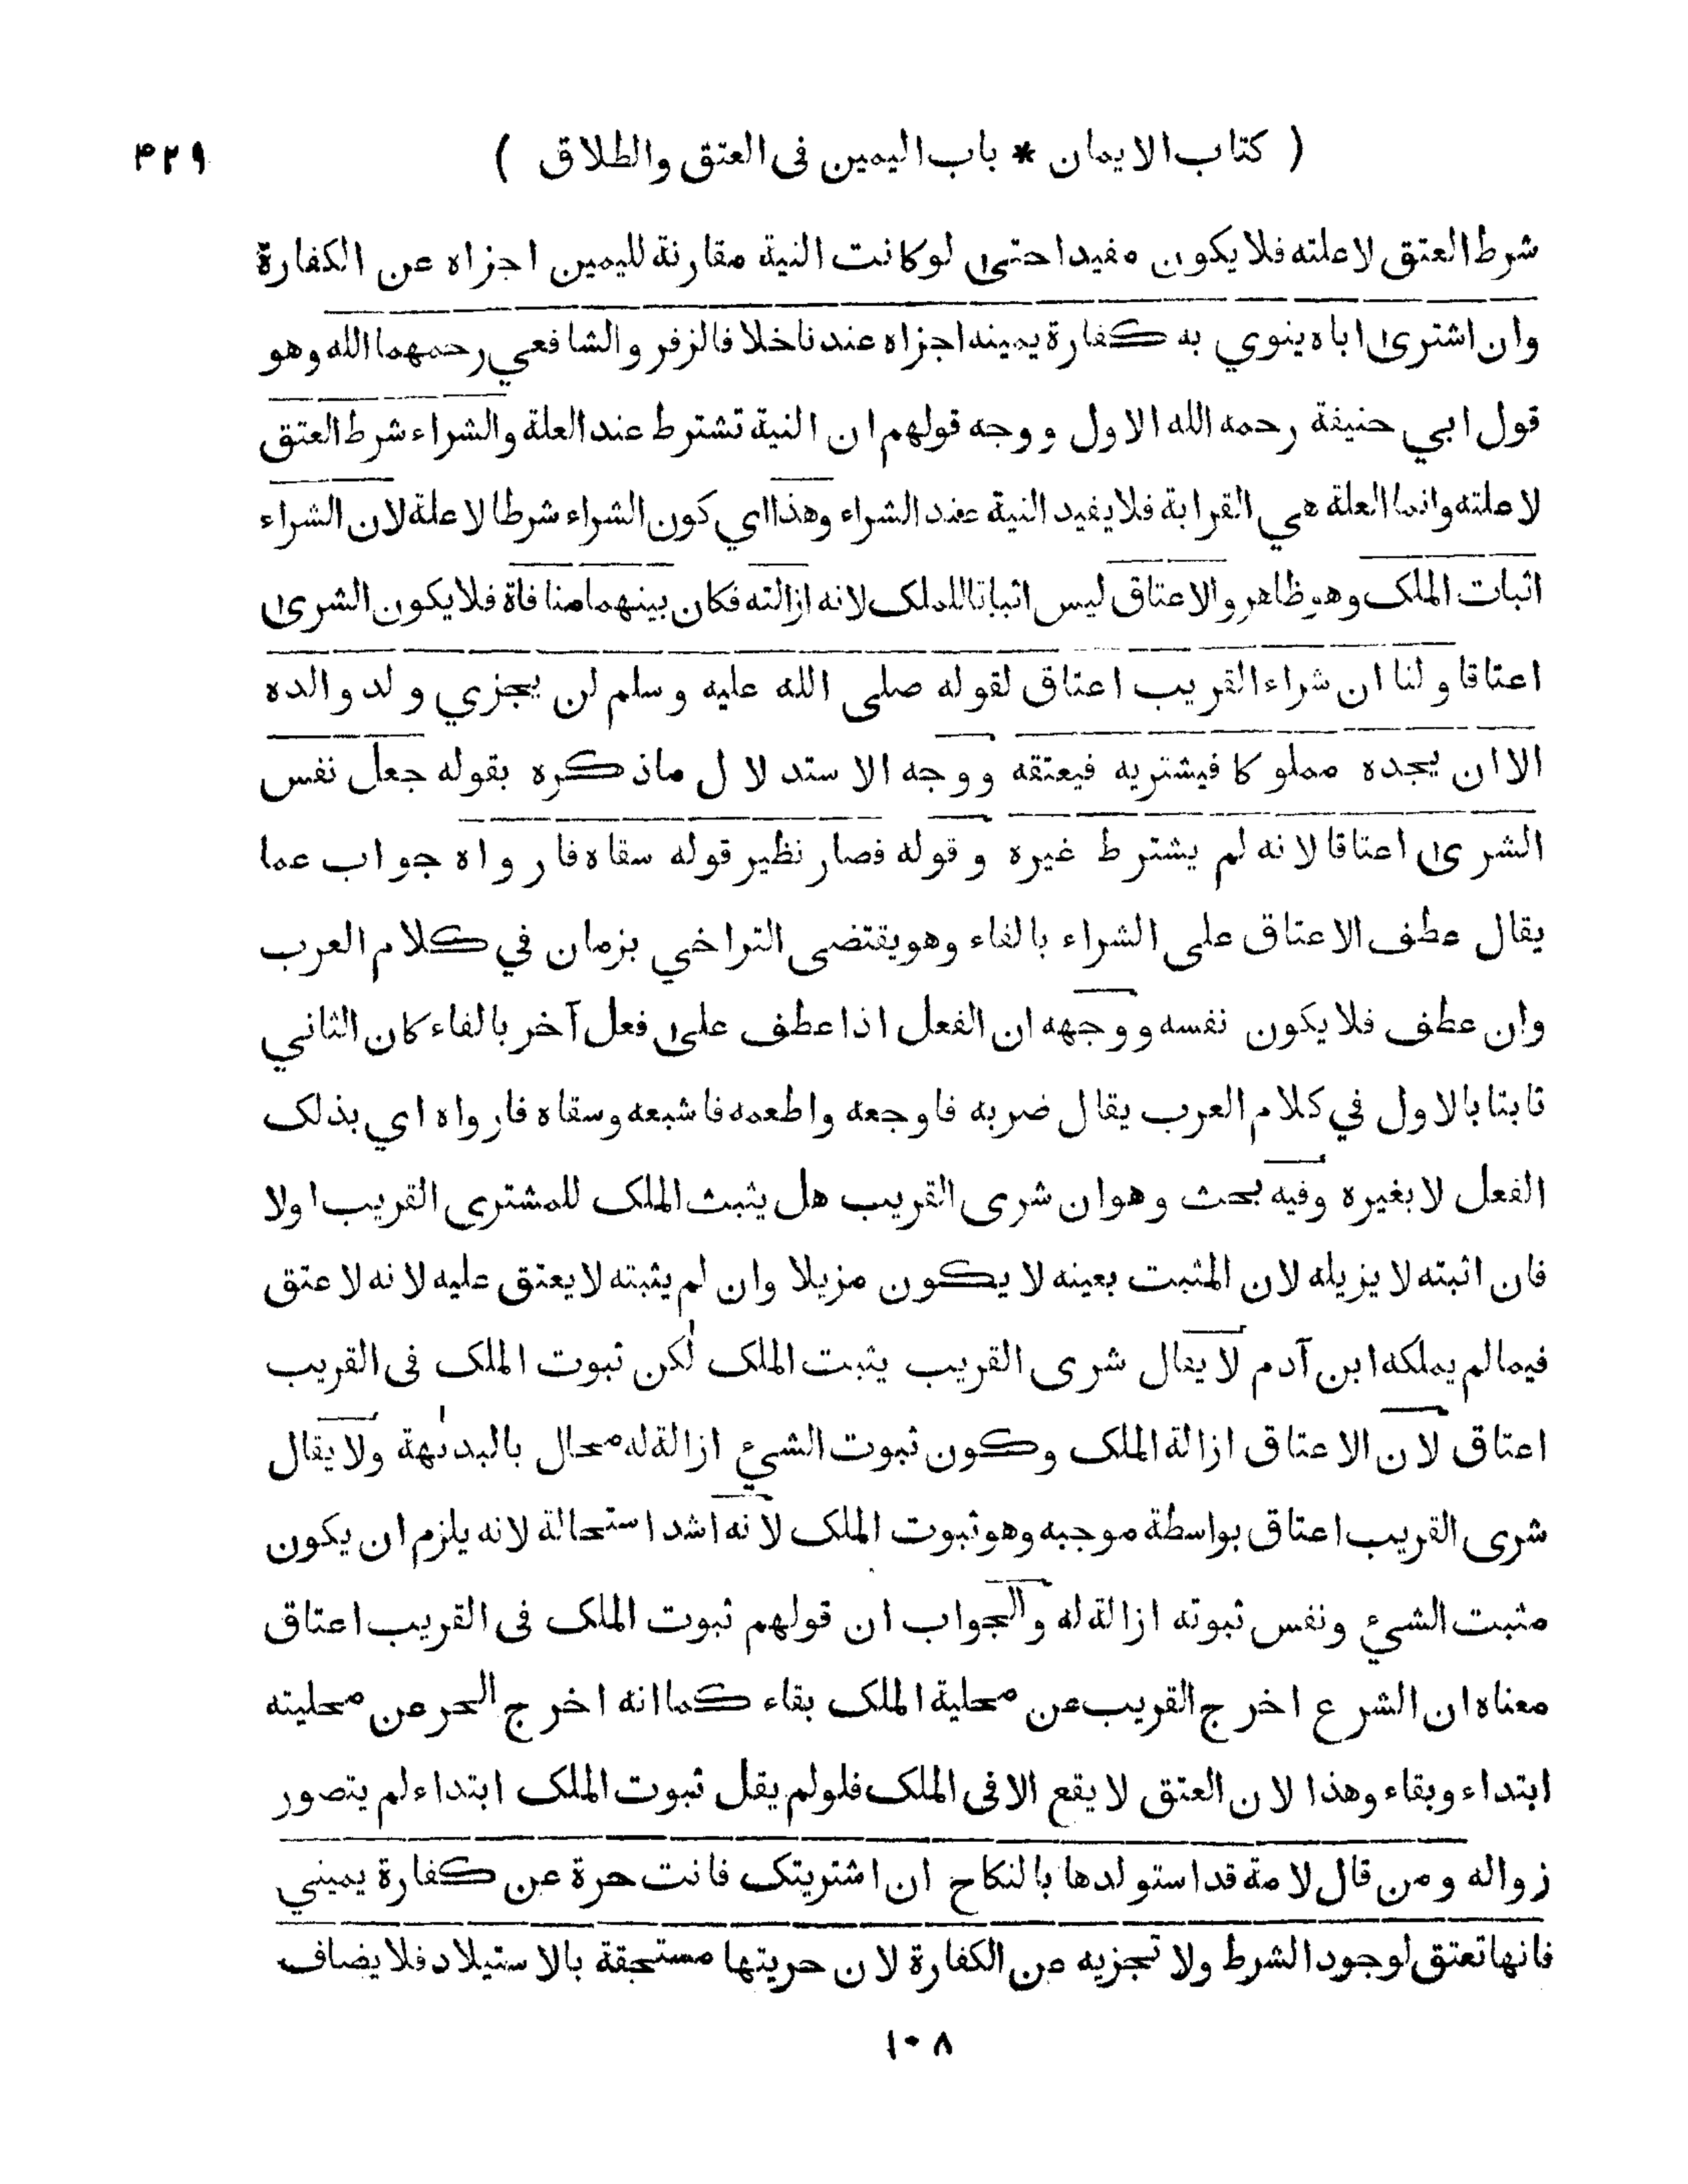 ( كتاب الايمان * باب اليمين فى العتق والطلاق ) ۴۲۹
شرط العتق لا علته فلا يكون مفيدا حتى لو كانت النية مقارنة لليمين اجزاه عن الكفارة
وان اشترى اباه ينوي به كفارة يمينه اجزاه عندنا خلافا لزفر والشافعي رحمهما الله وهو
قول ابي حنيفة رحمه الله الاول ووجه قولهم ان النية تشترط عند العلة والشراء شرط العتق
لا علته وانما العلة هي القرابة فلا يفيد النية عند الشراء وهذا اي كون الشراء شرطا لا علة لان الشراء
اثبات الملك وهو ظاهر والاعتاق ليس اثباتا للملك لانه ازالته فكان بينهما منافاة فلا يكون الشرى
اعتاقا ولنا ان شراء القريب اعتاق لقوله صلى الله عليه وسلم لن يجزي ولد والده
الا ان يجده مملوكا فيشتريه فيعتقه ووجه الاستدلال ماذكره بقوله جعل نفس
الشرى اعتاقا لانه لم يشترط غيره وقوله فصار نظير قوله سقاه فارواه جواب عما
يقال عطف الاعتاق على الشراء بالفاء وهو يقتضى التراخي بزمان في كلام العرب
وان عطف فلا يكون نفسه ووجهه ان الفعل اذا عطف على فعل آخر بالفاء كان الثاني
ثابتا بالاول في كلام العرب يقال ضربه فاوجعه واطعمه فاشبعه وسقاه فارواه اي بذلك
الفعل لا بغيره وفيه بحث وهو ان شرى القريب هل يثبت الملك للمشترى القريب اولا
فان اثبته لا يزيله لان المثبت بعينه لا يكون مزيلا وان لم يثبته لا يعتق عليه لانه لا عتق
فيما لم يملكه ابن آدم لا يقال شرى القريب يثبت الملك لكن ثبوت الملك فى القريب
اعتاق لان الاعتاق ازالة الملك وكون ثبوت الشيء ازالة له محال بالبديهة ولا يقال
شرى القريب اعتاق بواسطة موجبه وهو ثبوت الملك لانه اشد استحالة لانه يلزم ان يكون
مثبت الشيء ونفس ثبوته ازالة له والجواب ان قولهم ثبوت الملك فى القريب اعتاق
معناه ان الشرع اخرج القريب عن محلية الملك بقاء كما انه اخرج الحر عن محليته
ابتداء وبقاء وهذا لان العتق لا يقع الا فى الملك فلو لم يقل ثبوت الملك ابتداء لم يتصور
زواله ومن قال لامة قد استولدها بالنكاح ان اشتريتك فانت حرة عن كفارة يميني
فانها تعتق لوجود الشرط ولا تجزيه عن الكفارة لان حريتها مستحقة بالاستيلاد فلا يضاف
١٠٨